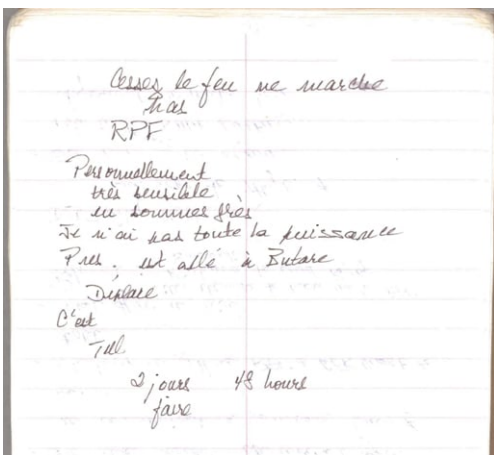 Cesser le feu ne marche
pas
RPF
Personnellement
très sensible
en sommes près
Je n'ai pas toute la puissance
Pres. est allé à Butare
Déplacé
C'est
Tel
2 jours 48 hours
faire